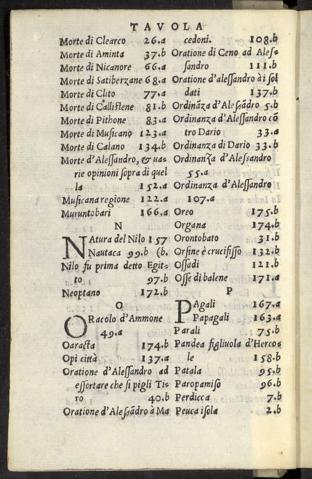 TAVOLA
Morte di Clearco 26.a
Morte di Aminta 37.b
Morte di Nicanore 66.a
Morte di Satiberzane 68.a
Morte di Clito 77.a
Morte di Callistene 81.b
Morte di Pithone 83.a
Morte di Musicano 123.a
Morte di Calano 134.b
Morte d'Alessandro, & uarie
rie opinioni sopra di quel
la 152.a
Musicana regione 122.a
Muruntobari 166.a
N
Natura del Nilo 157
Nautaca 99.b (b.
Nilo fu prima detto Egit=
to 97.b
Neoptano 172.b
O
Oracolo d'Ammone
49.a
Oaracta 174.b
Opi città 137.a
Oratione d'Alessandro ad
essortare che si pigli Tis
ro 40.b
Oratione d'Alesādro à Ma
cedoni. 108.b
Oratione di Ceno ad Ales=
sandro 111.b
Oratione d'alessandro à i sol
dati 137.b
Ordināza d'Alesādro 5.b
Ordinanza d'Alessandro cō
tro Dario 33.a
Ordinanza di Dario 33.b
Ordinanza d'Alessandro
55.a
Ordinanza d'Alessandro
107.a
Oreo 175.b
Organa 174.b
Orontobato 31.b
Orsine è crucifisso 132.b
Ossadi 121.b
Osse di balene 171.b
P
Pagali 167.a
Papagali 163.a
Parali 75.b
Pandea figliuola d'Hercos
le 158.b
Patala 95.b
Paropamiso 96.b
Perdicca 7.b
Peuca isola 2.b